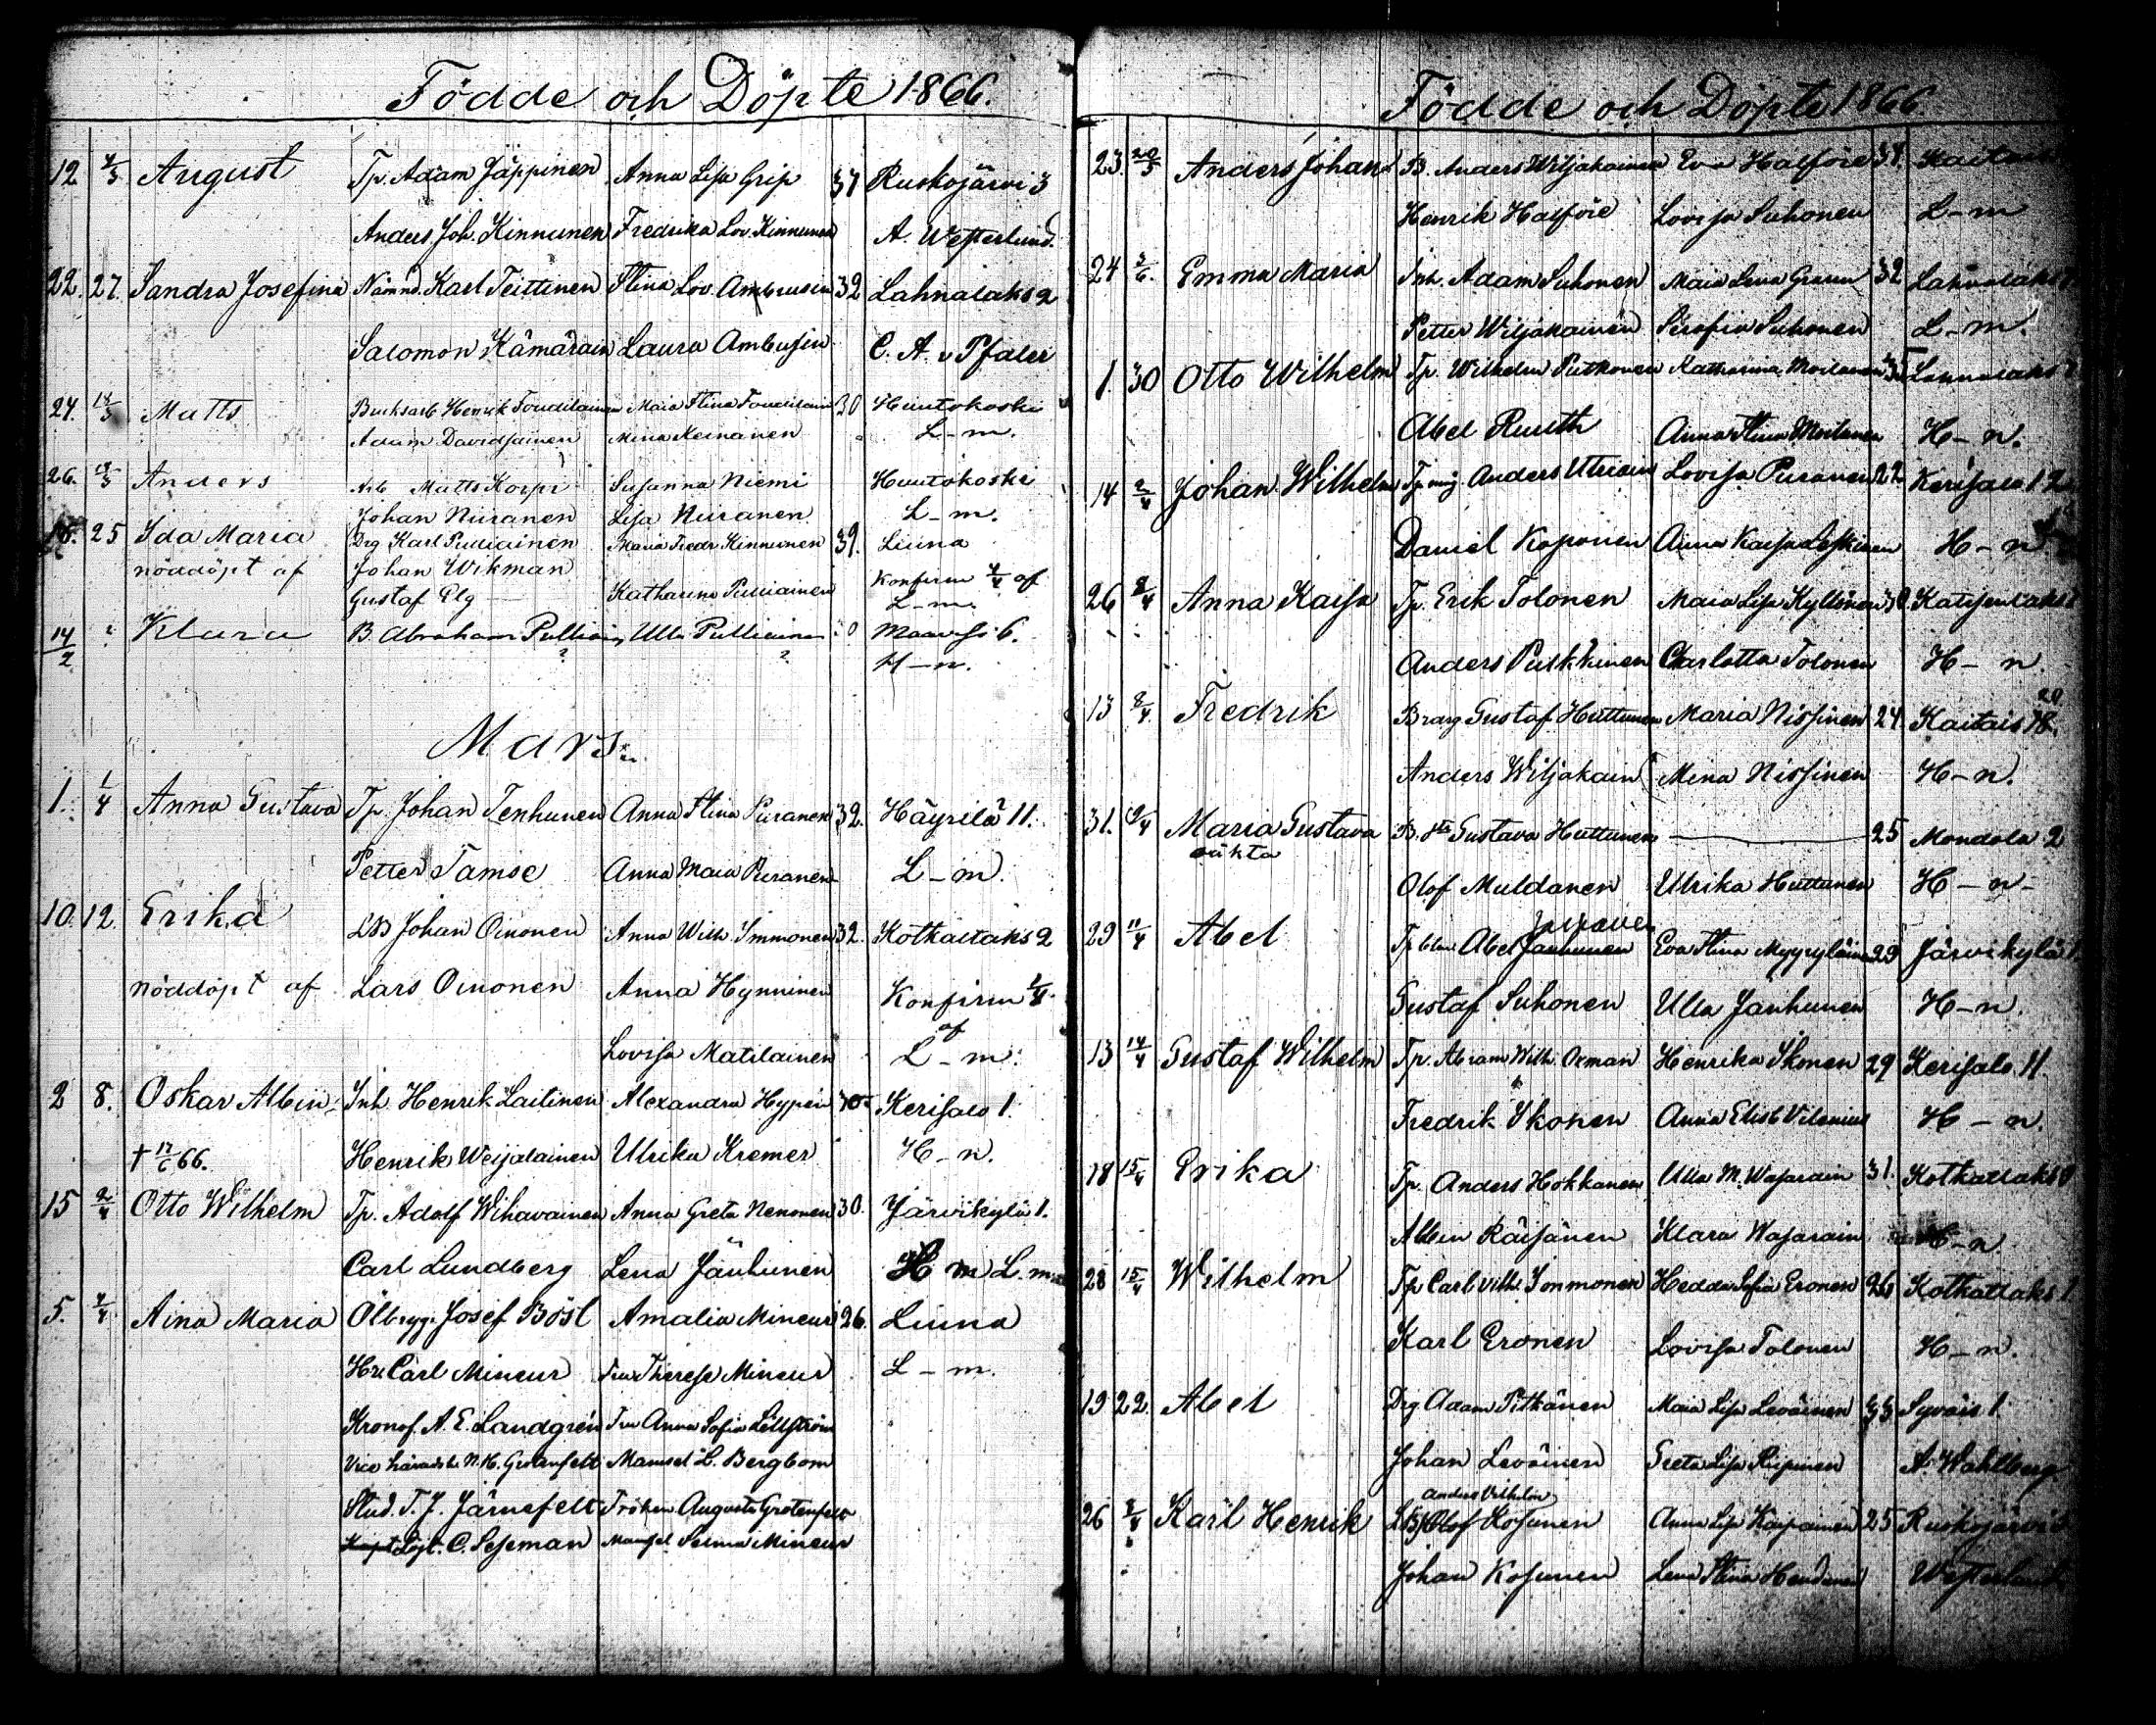 Födde och Döpte 1866.
12 4/3 August Tp. Adam Jäppinen Anna Lisa Grip 37 Ruskojärvi 3
Anders Joh. Kinnunen Fredrika Lov. Kinnunen A. Westerlund.
22. 27. Sandra Josefina Nämnd. Karl Teittinen Stina Lov. Ambrusin 32 Lahnalaks 2
Salomon Kämäräin Laura Ambusin C. A. v Pfaler
24. 18/3 Matts Henrik Toudilainen Maia Stina Toudilain 30 Huutokoski
Adam Davidsainen Mina Keinanen L-m.
26. 18/3 Anders Arb Matts Korpi Susanna Niemi Huutokoski
Johan Niiranen Lisa Niiranen L-m.
25 Ida Maria Drg Karl Pulliainen Maria Fredr Kinnunen 39. Liuna
nöddöpt af Johan Wikman
Gustaf Elg Katharina Pulliainen Konfirm 4/4 af
L-m.
14/2 ? Klara B. Abraham Pulliain Ulla Pulliainen Maavesi 6.
? ? H-n.
Mars.
1. 1/4 Anna Gustava Tp. Johan Tenhunen Anna Stina Puranen 32. Häyrilä 11.
Petter Tamse Anna Maia Puranen L-m.
10. 12. Erika LB Johan Oinonen Anna Wilh. Immonen 32. Kotkatlaks 2
nöddöpt af Lars Oinonen Anna Hynninen Konfirm 2/4
af
Lovisa Matilainen L-m.
2 8. Oskar Albin Inh. Henrik Laitinen Alexandra Hypein 40 Kerisalo 1.
† 17/6 66. Henrik Weijalainen Ulrika Kremer H-n.
15 2/4 Otto Wilhelm Tp. Adolf Wihavainen Anna Greta Nenonen 30. Järvikylä 1.
Carl Lundberg Lena Jäuhunen L-m
5. 4/4 Aina Maria Ölbrygg. Josef Bösl Amalia Mineur 26. Liuna
Hr. Carl Mineur Fru Therese Mineur L-m.
Kronof. A. E. Landgrén Fru Anna Sofia
Vice häradsh. N. H. Grotenfelt Mamsel L. Bergbom
Stud. T. J. Järnefelt Fröken Augusta Grotenfelt
Löjt. C. Seseman Mamsel Selma Mineur
Födde och Döpte 1866.
23. 20/5 Anders Johan B. Anders Wiljakainen Eva Halföre 34.
Henrik Halföre Lovisa Suhonen L-m
24 3/6. Emma Maria Inh. Adam Suhonen Maia Lena 32 Lahnalaks
Petter Wiljakainen Serafia Suhonen L-m.
1. 30 Otto Wilhelm Tp. Wilhelm Putkonen Katharina Moilanen 35 Lahnalaks
Abel Ruuth Anna Stina Moilanen H-n.
14 2/4 Johan Wilhelm Tp mig Anders Utriain Lovisa Puranen 22. Kerisalo 12
Daniel Koponen Anna Kaisa Leskinen H-n.
26 8/4 Anna Kaisa Tp. Erik Tolonen Maia Lisa Kyllönen Katisenlaks
Anders Putkkinen Charlotta Tolonen H-n
13 8/4. Fredrik Gustaf Huttunen Maria Nissinen 24 Kaitais 20
Anders Wiljakain Mina Nissinen H-n.
31. Maria Gustava B. Gustava Huttunen 25 Mondola 2
oäkta
Olof Muldanen Ulrika Huttunen H-n-
29 11/4 Abel Tp Abel Jauhunen Eva Stina Myyryläinen 29 Järvikylä 1.
Gustaf Suhonen Ulla Jäuhunen H-n.
13 14/4 Gustaf Wilhelm Tp. Abram Wilh. Orman Henrika Ikonen 29 Kerisalo 11.
Fredrik Ikonen Anna Elisb Vilenius H-n.
18 15/4 Erika Tp. Anders Hokkanen Ulla M. Wasarain 31. Kotkatlaks
Albin Räisänen Klara Wasarain H-n.
28 15/4 Wilhelm Tp Carl Vilh. Immonen Hedda Sofia Eronen 26 Kotkatlaks 1
Karl Eronen Lovisa Tolonen H-n.
19 22. Abel Drg. Adam Pitkänen Maia Lisa Leväinen 33 Syväis 1.
Johan Leväinen Greta Lisa Riipinen A. Wahlberg
Anders Vilhelm
26 Karl Henrik Olof Kosunen Anna Lisa Karpainen 25 Ruskojärvi
Johan Kosunen Lena Stina Westerlund